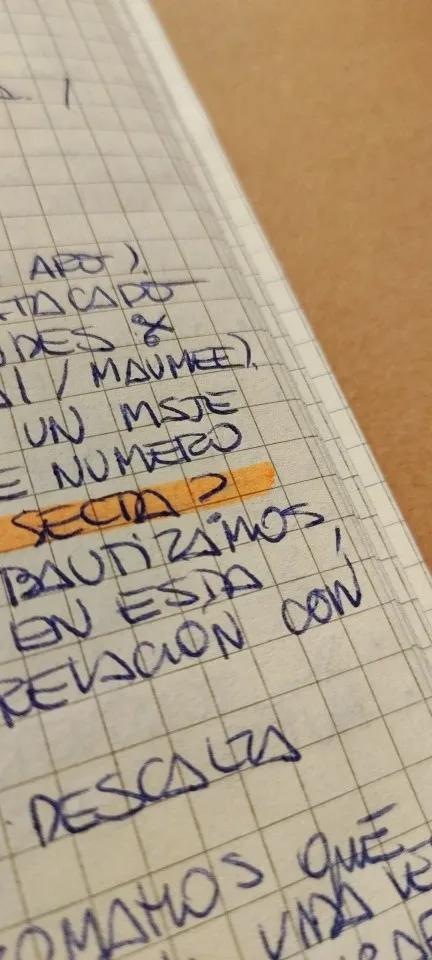 APO).
TACADO
DES %
AI / MAUMEE).
UN MSJE
E NUMERO
SECTA?
BAUTIZAMOS,
EN ESTA
REVACIÓN CON
DESCALZA
OMAMOS QUE
VIDA